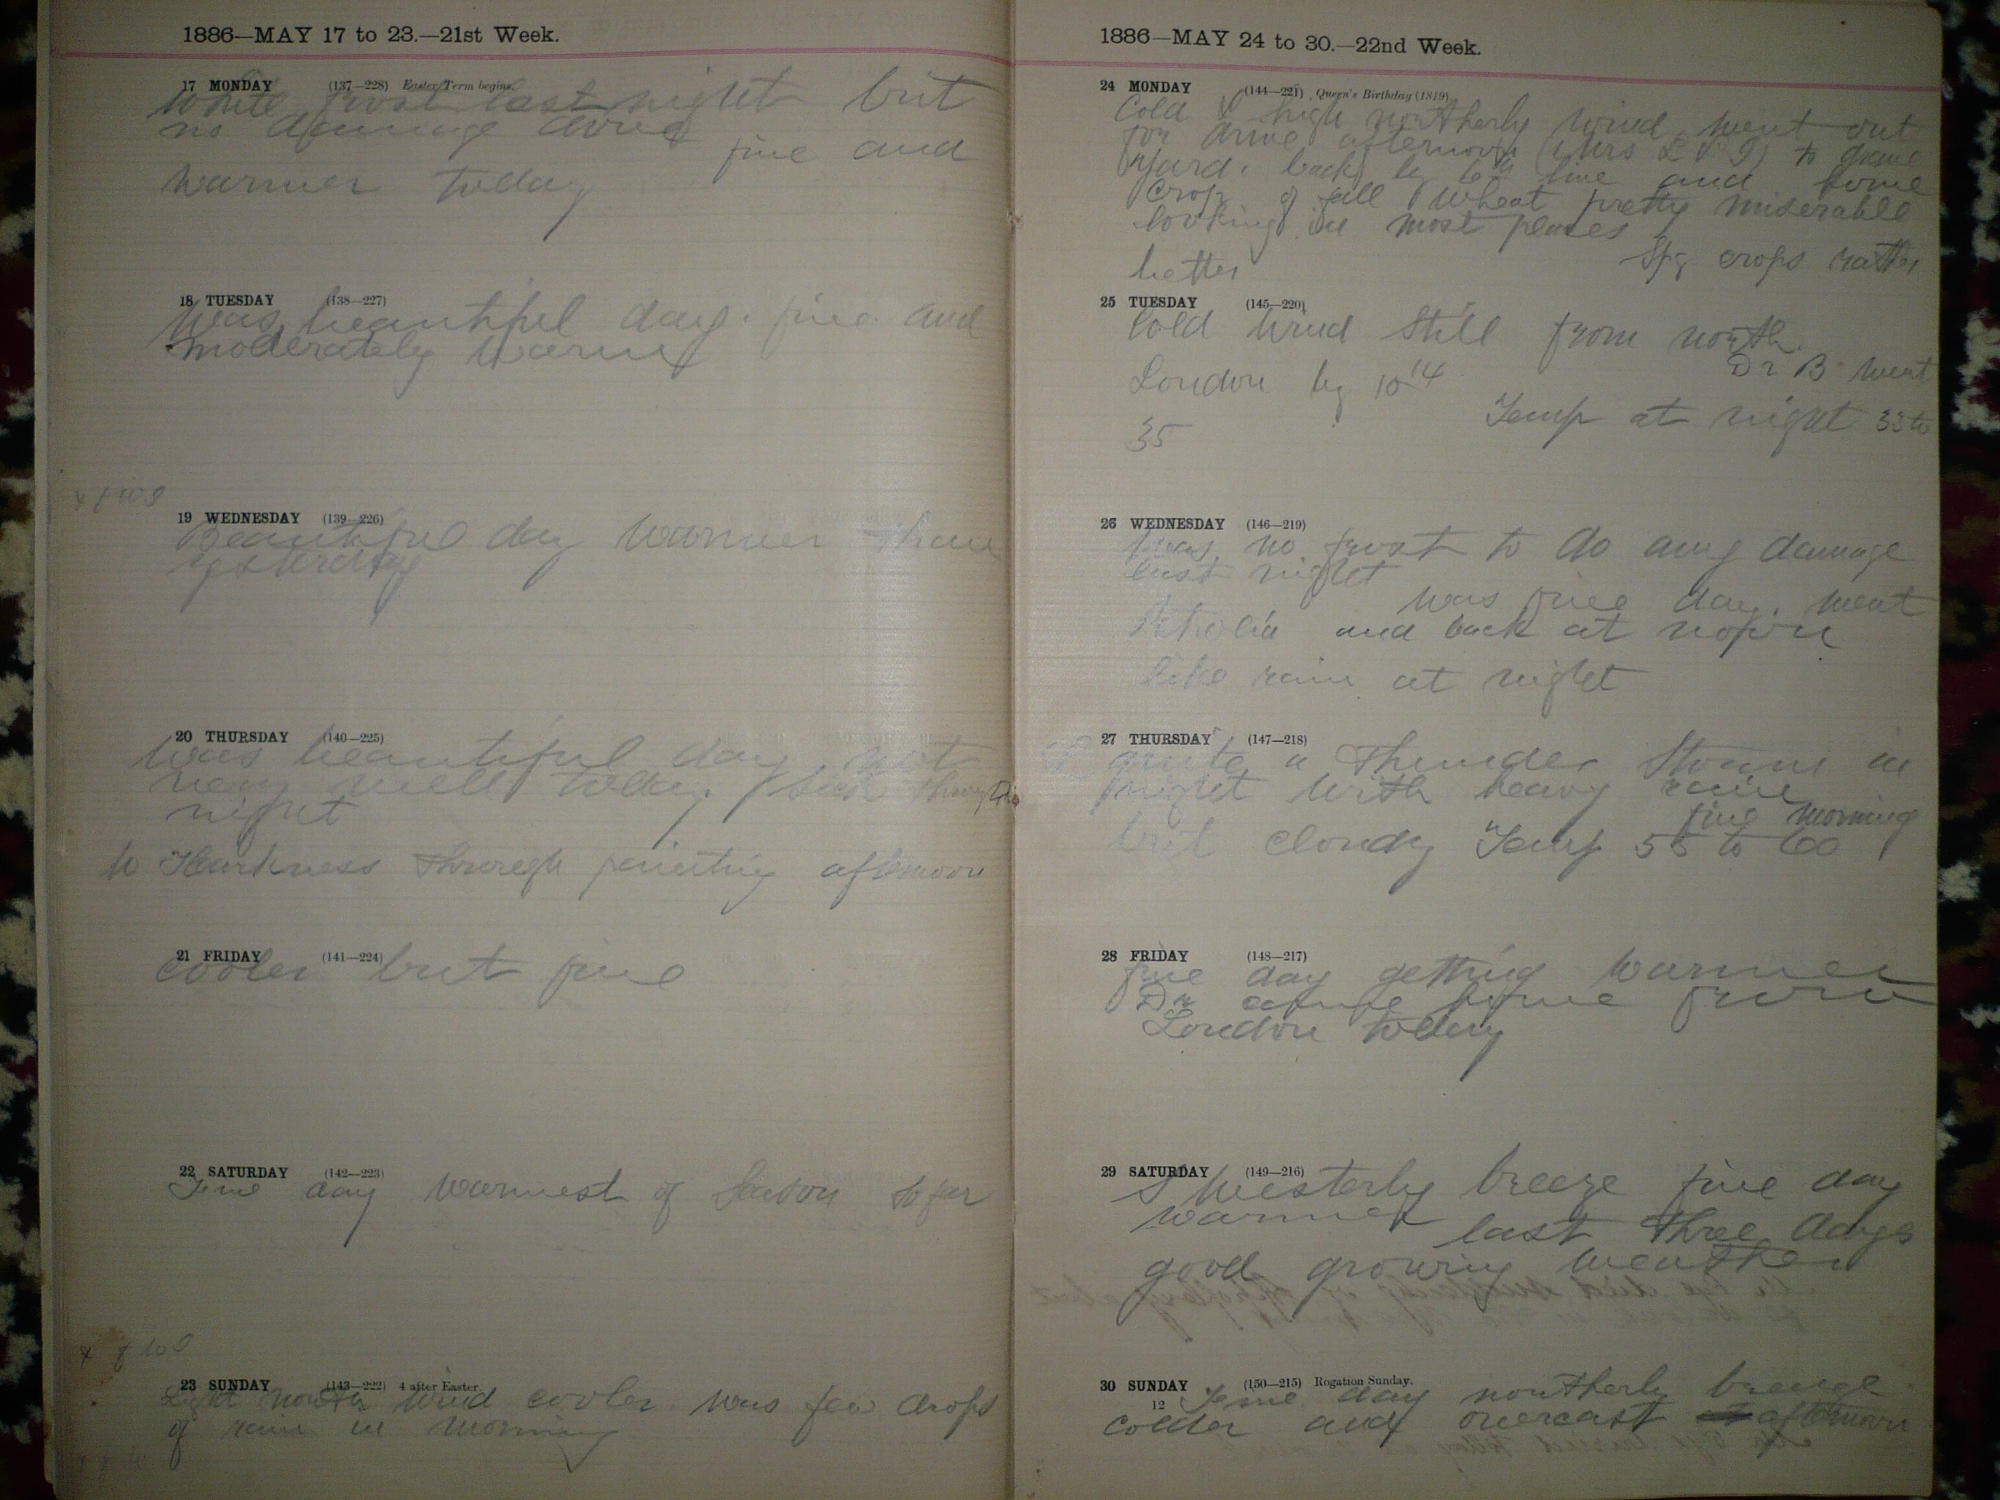 1886—MAY 17 to 23.—21st Week.
17 MONDAY (137—228) Easter Term begins.
White frost last night but
no damage done
fine and
warmer today
18 TUESDAY (138—227)
Was beautiful day. fine and
moderately warm
19 WEDNESDAY (139—226)
Beautiful day warmer than
yesterday
20 THURSDAY (140—225)
Was beautiful day not
very well today. sick through
night
Harkness through painting afternoon
21 FRIDAY (141—224)
cooler but fine
22 SATURDAY (142—223)
Fine day warmest of Season so far
23 SUNDAY (143—222) 4 after Easter.
Light north wind cooler was few drops
of rain in morning
1886—MAY 24 to 30.—22nd Week.
24 MONDAY (144—221) Queen's Birthday (1819).
Cold & high northerly wind went out
for drive afternoon (Mrs L & I) to
yard. back by 6 and
crop of fall wheat pretty miserable
looking in most places
Spg crops rather
better
25 TUESDAY (145—220)
Cold wind still from north.
Dr B went
London by 10 14
Temp at night 33 to
35
26 WEDNESDAY (146—219)
Was no frost to do any damage
last night
was fine day. went
Petrolia and back at noon
like rain at night
27 THURSDAY (147—218)
quite a Thunder Storm in
night with heavy rain
fine morning
but cloudy Temp 55 to 60
28 FRIDAY (148—217)
fine day getting warmer
Dr came home from
London today
29 SATURDAY (149—216)
S Westerly breeze fine day
warmer last three days
good growing weather
30 SUNDAY (150—215) Rogation Sunday.
12 Fine day northerly breeze
colder and overcast afternoon